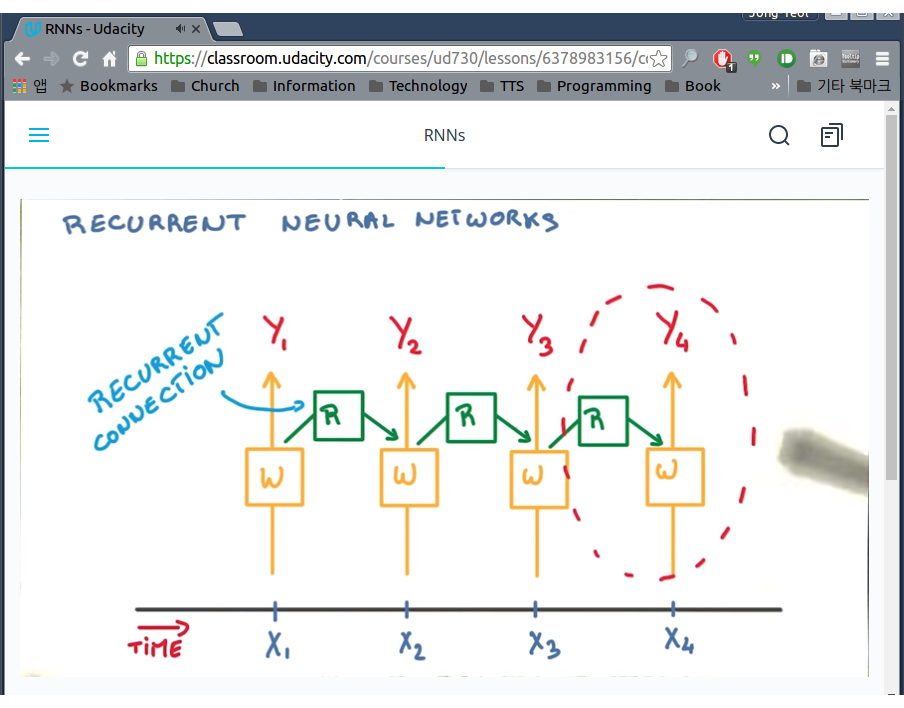 RNNs - Udacity
https://classroom.udacity.com/courses/ud730/lessons/6378983156/c
앱 Bookmarks Church Information Technology TTS Programming Book » 기타 북마크
RNNs
RECURRENT NEURAL NETWORKS
Y₁ Y₂ Y₃ Y₄
RECURRENT
CONNECTION
R R R
W W W W
TIME
X₁ X₂ X₃ X₄